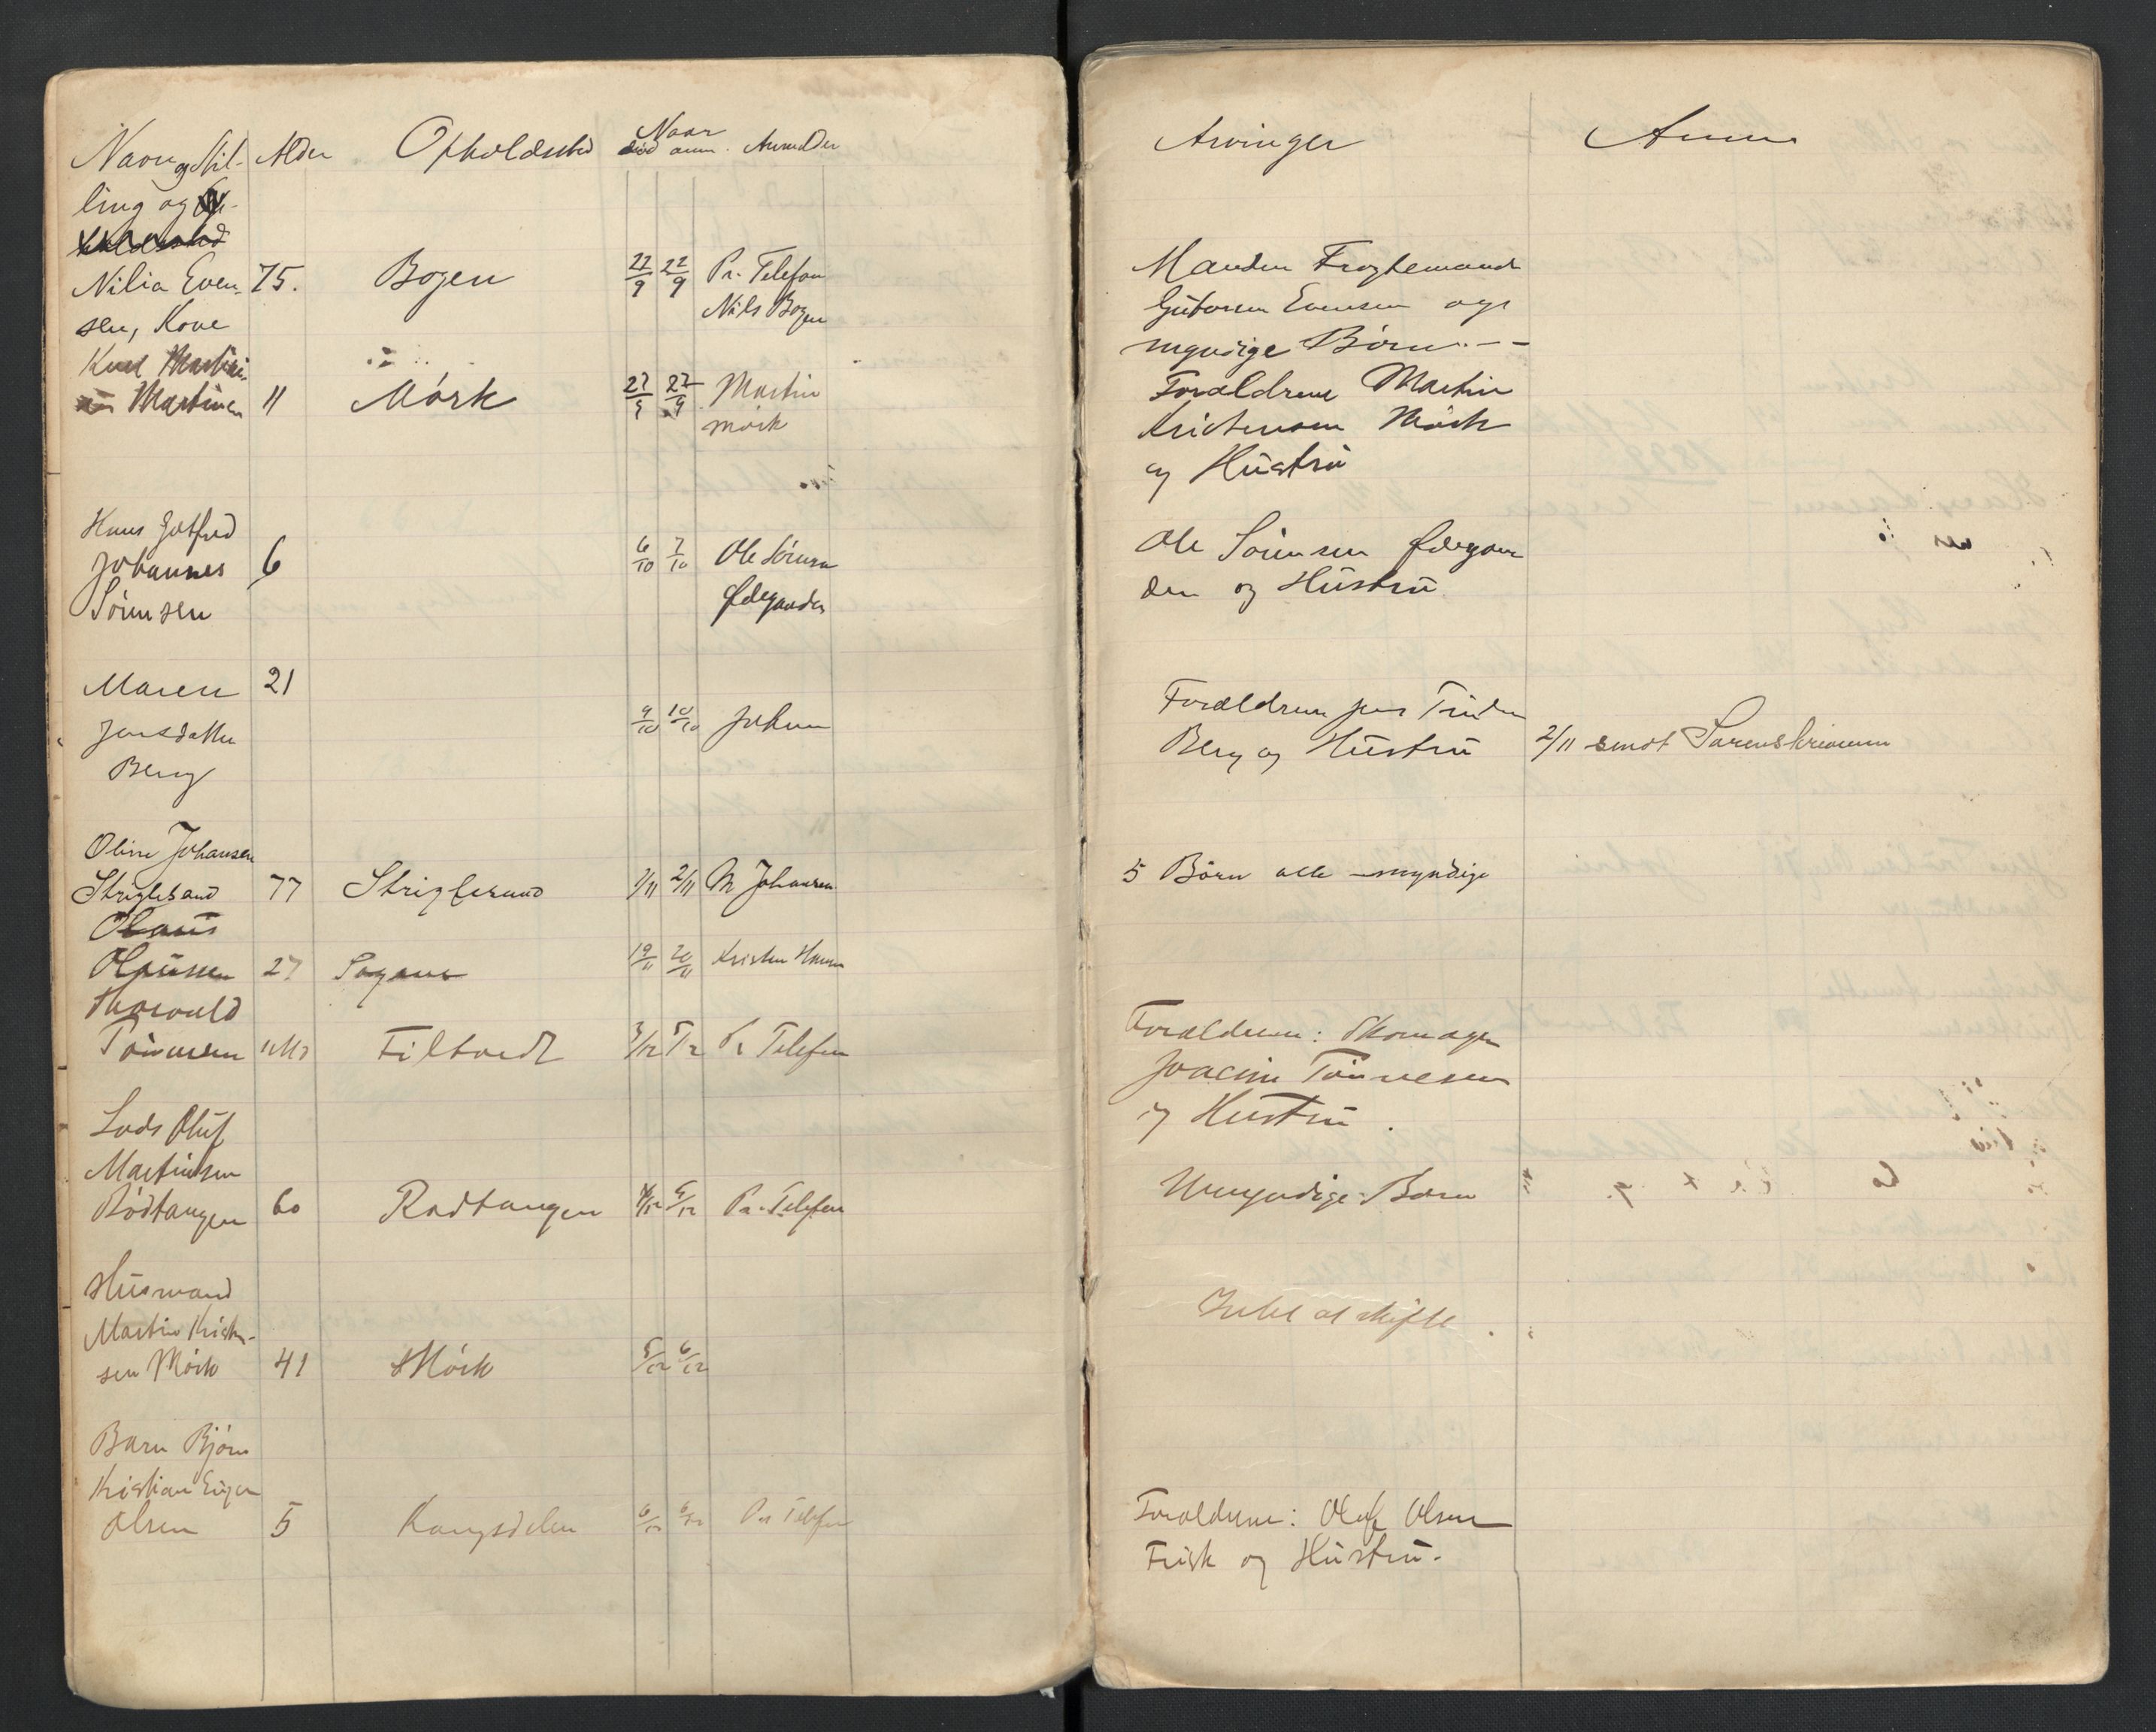 Navn og Stil- Alder Opholdssted Naar død anm. Anmelder
ling og
Nilia Even- 75. Bogen 22/9 22/9 Pr. Telefon
sen, Kone Nils Bogen
Karl Martini-
Martinsen 11 Mörk 27/9 27/9 Martin
Mörk
Hans Gotfred
Johannes 6 6/10 7/10 Ole Sörensen
Sörensen Ødegaarden
Maren 21
Jensdatter 9/10 10/10 Johan
Berg
Oline Johansen
Striglesand 77 Striglesund 1/11 2/11 M Johansen
Olaus
Olaussen 27 Sagene 19/11 20/11 Kristen Hansen
Thorvald
Tönnesen 11 Md Filtvedt 3/12 5/12 Pr Telefon
Lods Oluf
Martinsen
Rödtangen 60 Rødtangen 4/12 5/12 Pr. Telefon
Husmand
Martin Kristen-
sen Mörk 41 Mörk 5/12 6/12
Barn Björn
Kristian Einer
Olsen 5 Kongsdelen 6/12 6/12 Pr Telefon
Arvinger Anm
Manden Fragtemand
Gutorm Evensen og
myndige Börn. -
Forældrene Martin
Kristensen Mörk
og Hustru
Ole Sörensen Ødegaar
den og Hustru
Forældrene Jens
Berg og Hustru 2/11 sendt Sorenskriveren
5 Börn alle myndige
Forældrene: Skomager
Joacim Tönnesen
og Hustru.
Umyndige Børn
Intet at skifte.
Forældrene: Oluf Olsen
Frisk og Hustru.